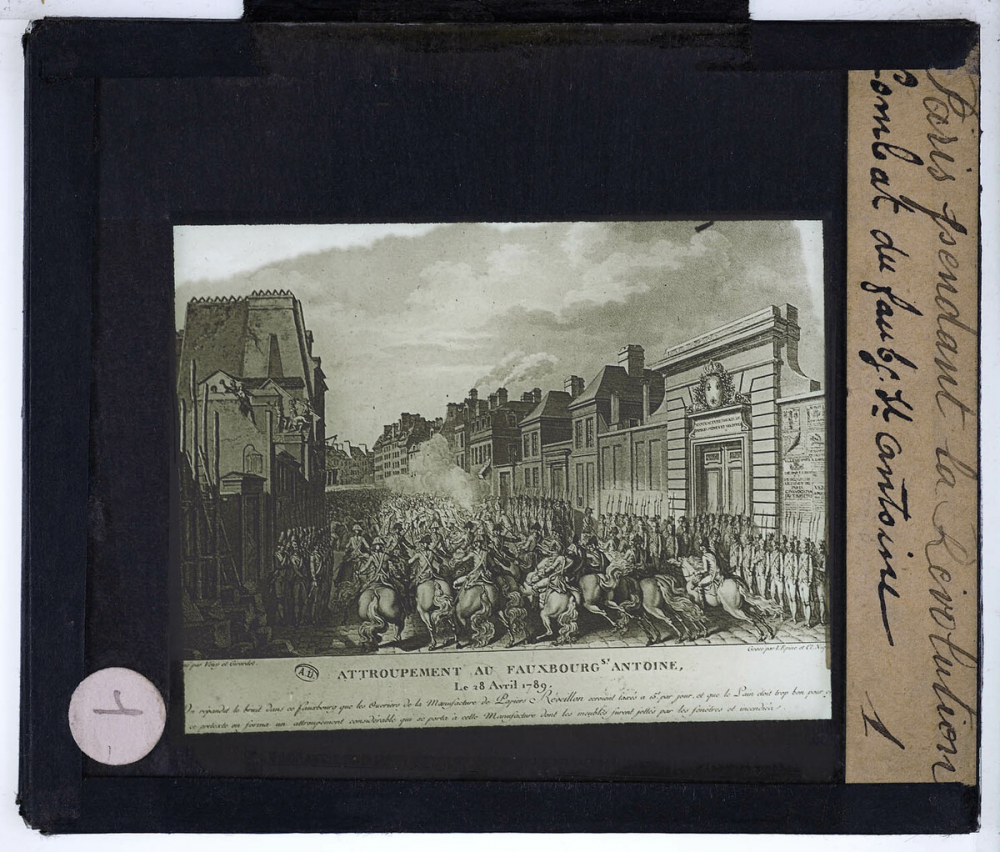 Paris pendant la Révolution
Combat du faubg. St. Antoine 1
1
A.D.
Gravé par l'Epine et Cl. Niq
ATTROUPEMENT AU FAUXBOURG ST ANTOINE,
Le 28 Avril 1789,
repandit le bruit dans ce Fauxbourg que les Ouvriers de la Manufacture de Papiers Réveillon seroient taxés a 15 s par jour, et que le Pain etoit trop bon pour
ce pretexte on forma un attroupement considérable qui se porta à cette Manufacture dont les meubles furent jettés par les fenêtres et incendiés.